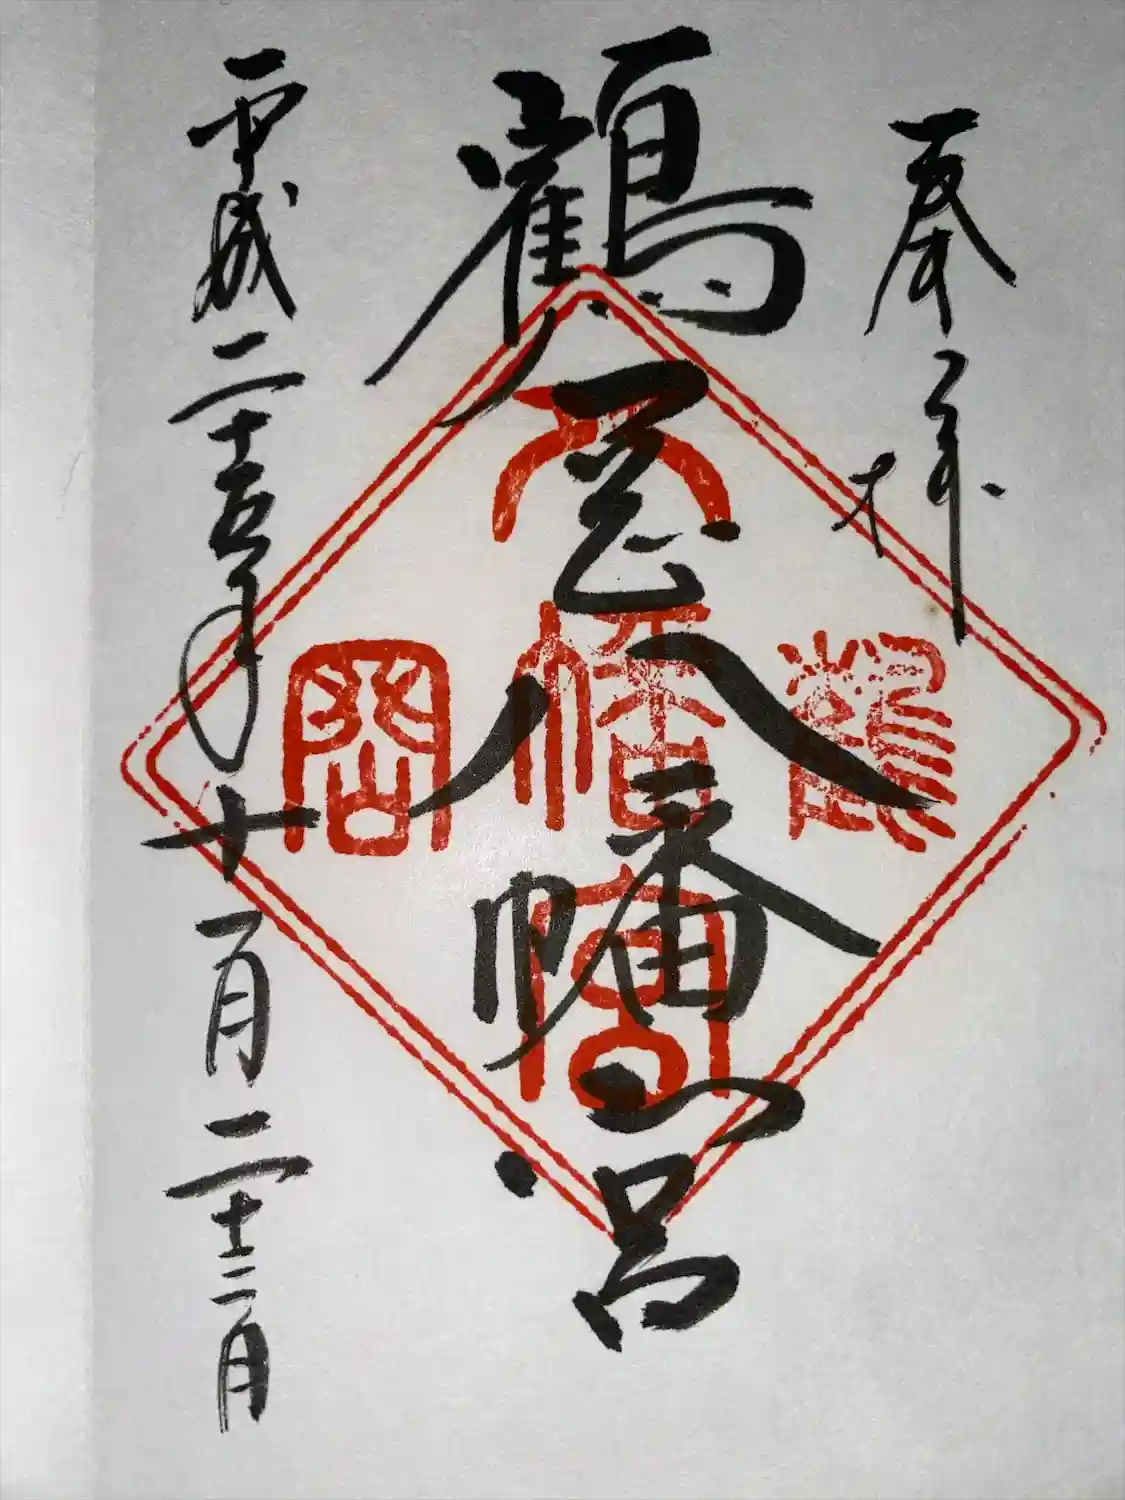 奉拝
鶴岡八幡宮
平成二十五年十一月二十三日
鶴
八幡宮
岡